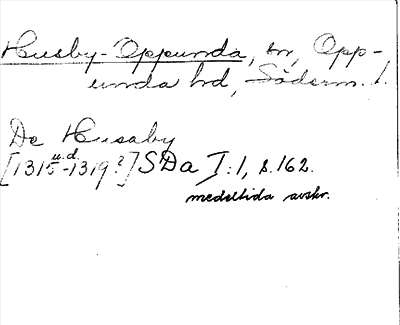 Husby-Oppunda, sn, Opp-
unda hd, Söderm. l.
De Husaby
u.d.
[1315-1319?] SDa I:1, s. 162.
medeltida avskr.